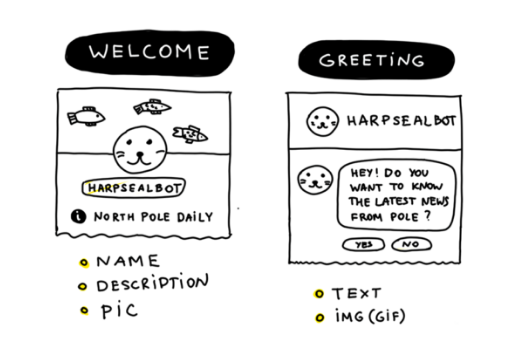 WELCOME
HARPSEALBOT
i NORTH POLE DAILY
NAME
DESCRIPTION
PIC
GREETING
HARPSEALBOT
HEY! DO YOU
WANT TO KNOW
THE LATEST NEWS
FROM POLE?
YES NO
TEXT
iMG (GiF)